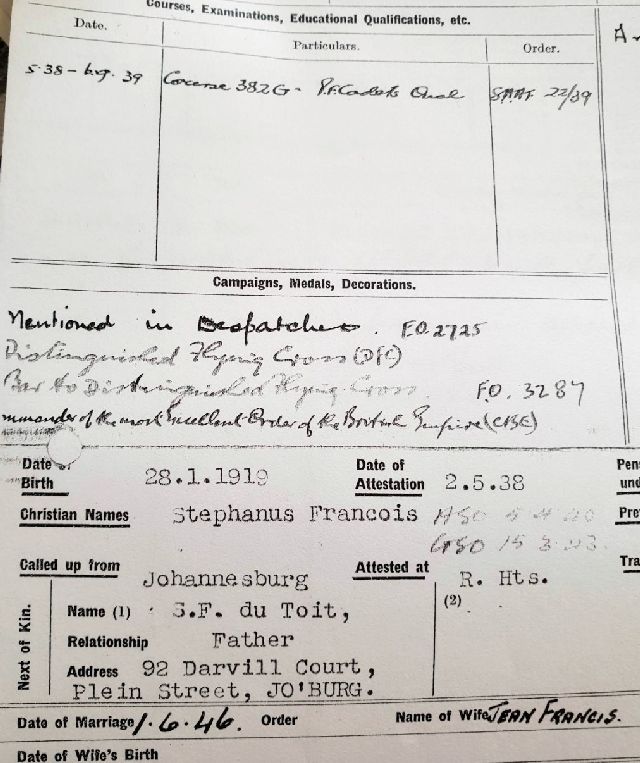 Courses, Examinations, Educational Qualifications, etc.
Date. Particulars. Order.
5.38 - Aug. 39 Course 382G - Pr. Cadets Qual SAAF 22/39
Campaigns, Medals, Decorations.
Mentioned in Despatches. F.O. 2725
Distinguished Flying Cross (DFC)
Bar to Distinguished Flying Cross. F.O. 3287
mmander of the most Excellent Order of the British Empire (CBE)
Date of Birth 28.1.1919 Date of Attestation 2.5.38
Pen
und
Christian Names Stephanus Francois Pre
Called up from Johannesburg Attested at R. Hts. Tra
Next of Kin. Name (1) S.F. du Toit, (2)
Relationship Father
Address 92 Darvill Court,
Plein Street, JO'BURG.
Date of Marriage 1.6.46. Order Name of Wife JEAN FRANCIS.
Date of Wife's Birth